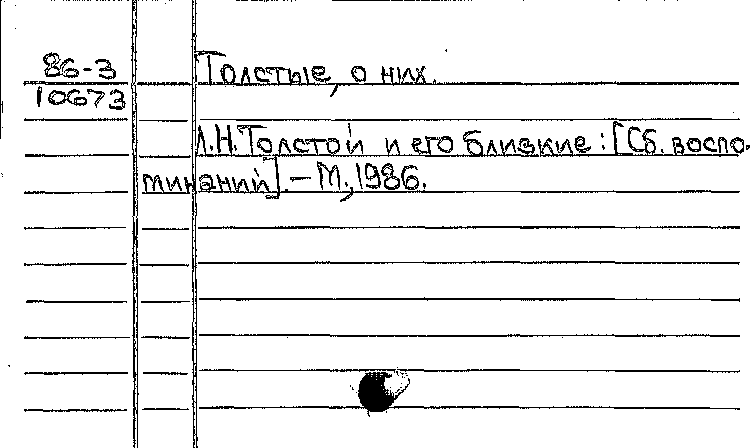 86-3 Толстые, о них.
10673
Л.Н.Толстой и его близкие: [Сб. воспо-
минаний]. – М., 1986.